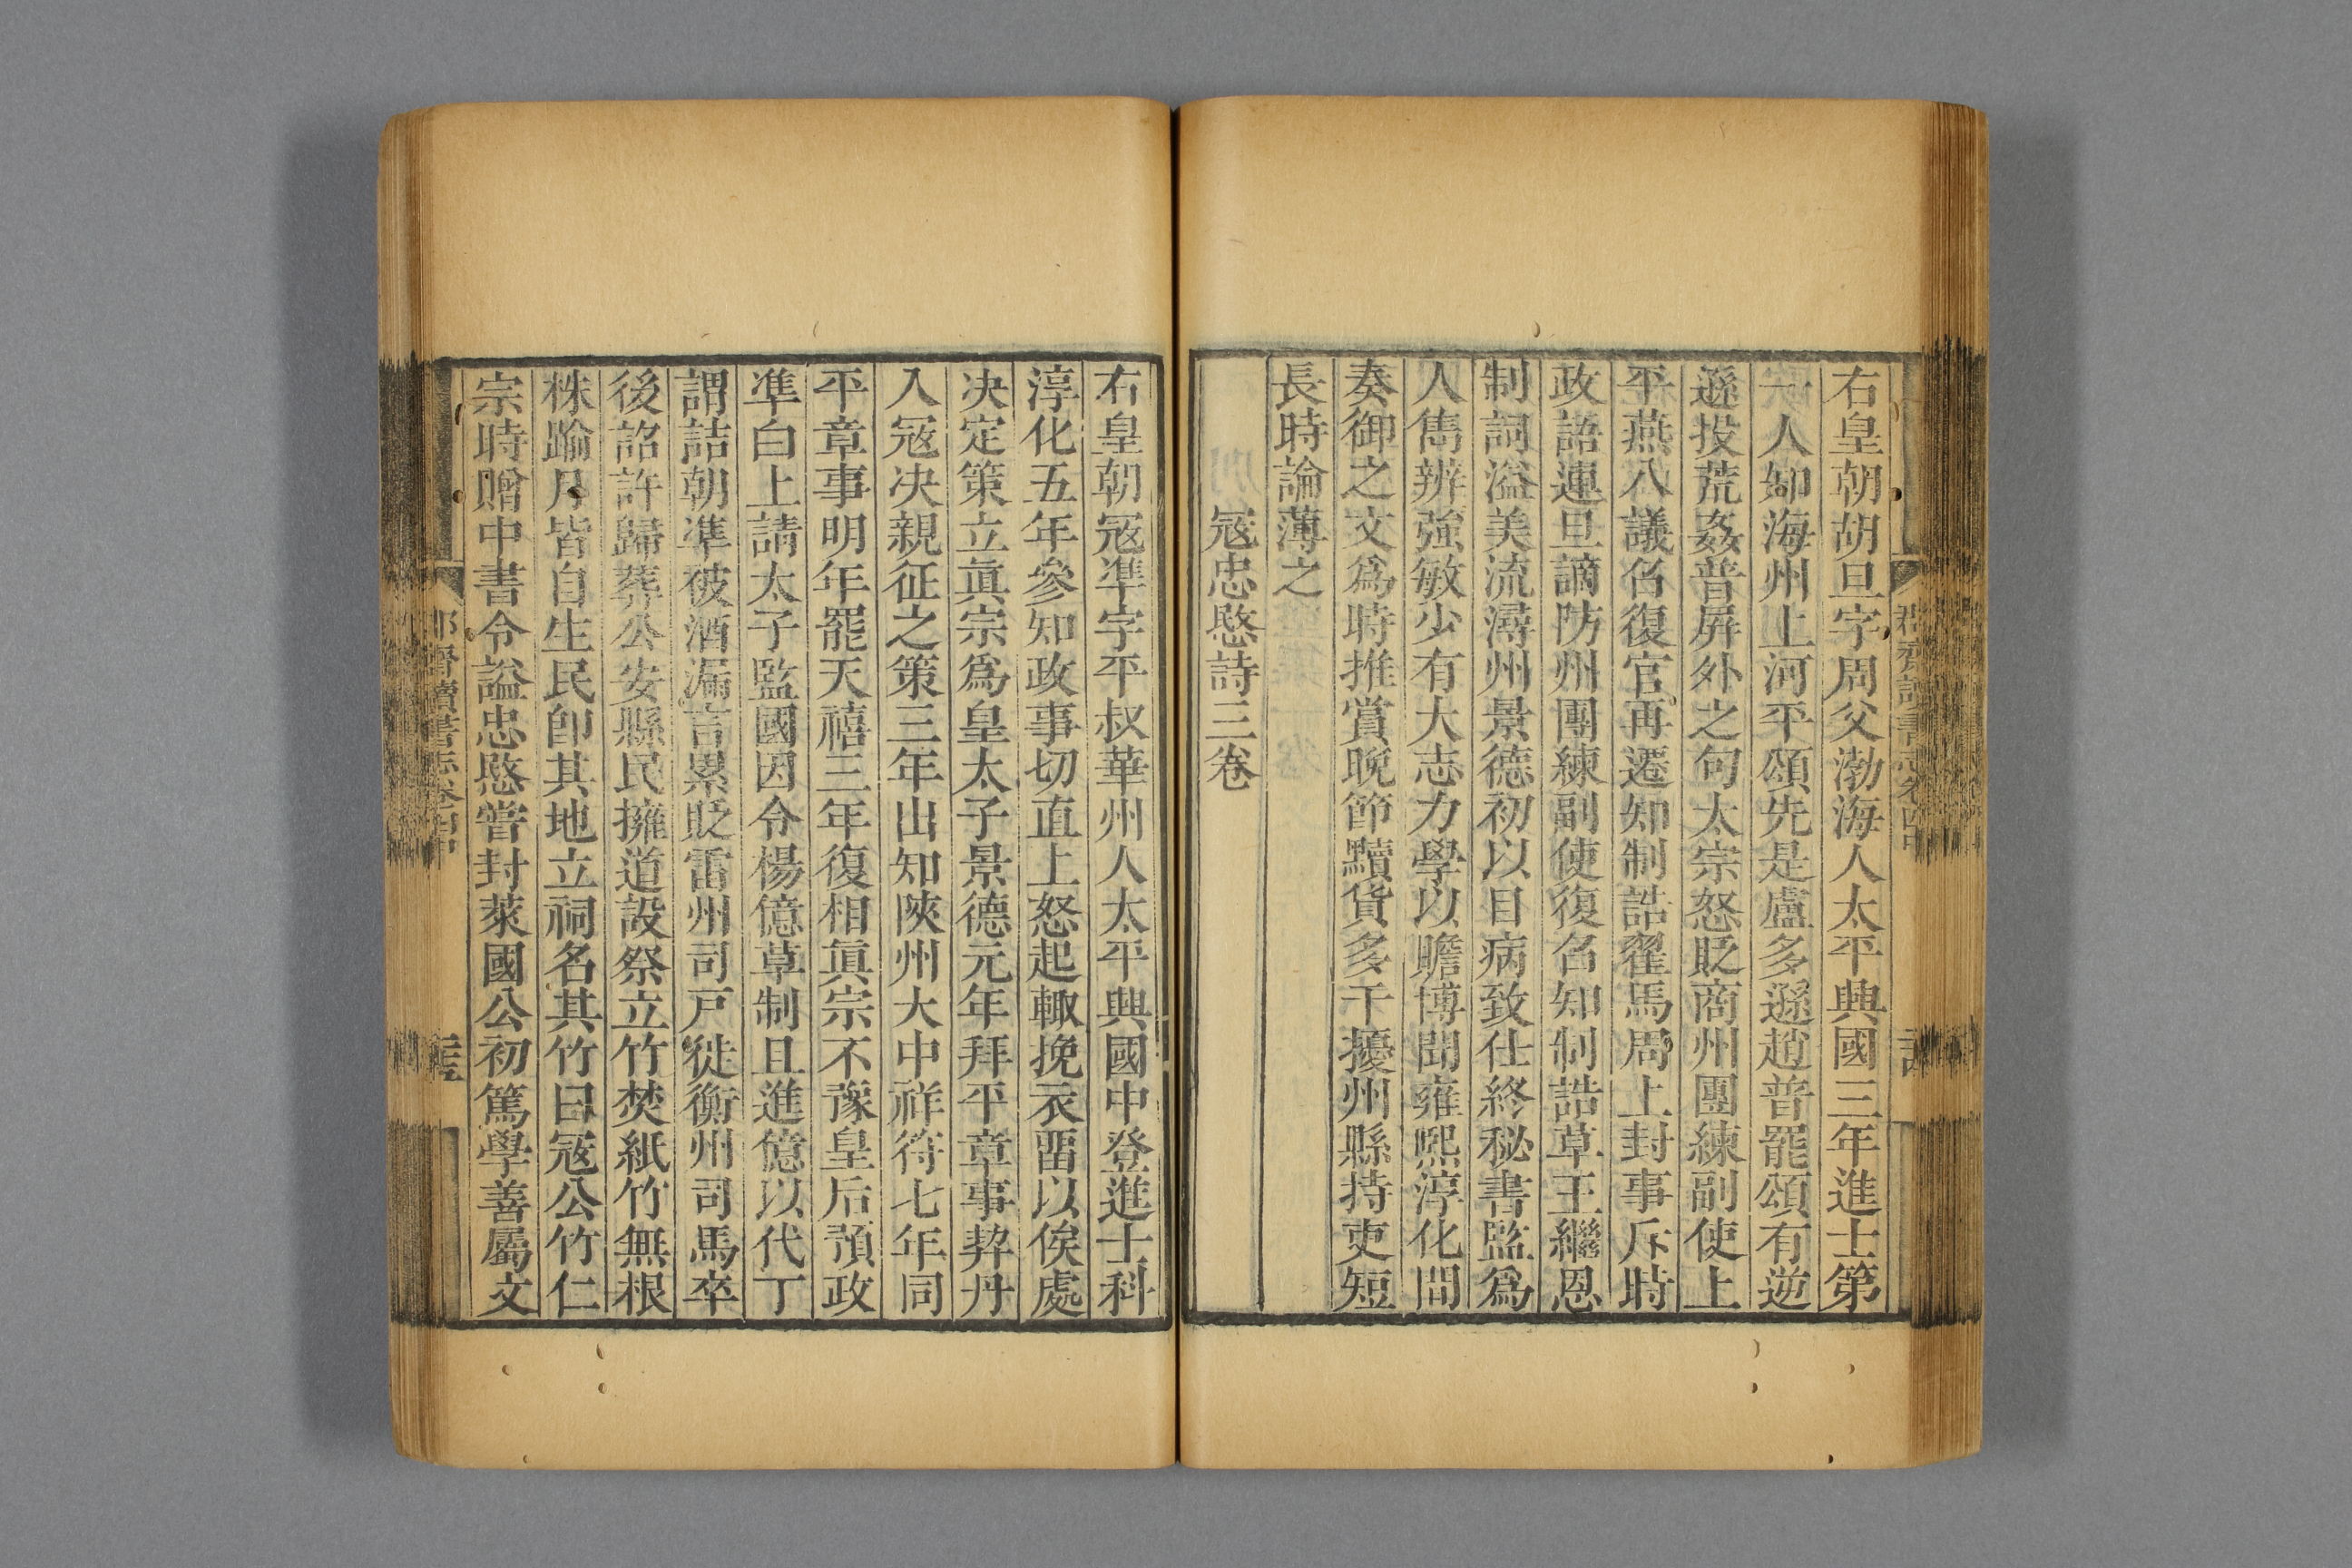 右皇朝胡旦字周父渤海人太平興國三年進士第
一人知海州上河平頌先是盧多遜趙普罷頌有逆
遜投荒姦普屏外之句太宗怒貶商州團練副使上
平燕八議召復官再遷知制誥翟馬周上封事斥時
政語連旦謫防州團練副使復召知制誥草王繼恩
制詞溢美流潯州景德初以目病致仕終秘書監爲
人雋辨強敏少有大志力學以贍博聞雍熙淳化間
奏御之文爲時推賞晚節黷貨多干擾州縣持吏短
長時論薄之
寇忠愍詩三卷
右皇朝寇準字平叔華州人太平興國中登進士科
淳化五年參知政事切直上怒起輒挽衣畱以俟處
决定策立眞宗爲皇太子景德元年拜平章事契丹
入寇决親征之策三年出知陝州大中祥符七年同
平章事明年罷天禧三年復相眞宗不豫皇后預政
準白上請太子監國因令楊億草制且進億以代丁
謂詰朝準被酒漏言累貶雷州司戸徙衡州司馬卒
後詔許歸葬公安縣民擁道設祭立竹焚紙竹無根
株踰月皆自生民卽其地立祠名其竹曰寇公竹仁
宗時贈中書令謚忠愍嘗封萊國公初篤學善屬文